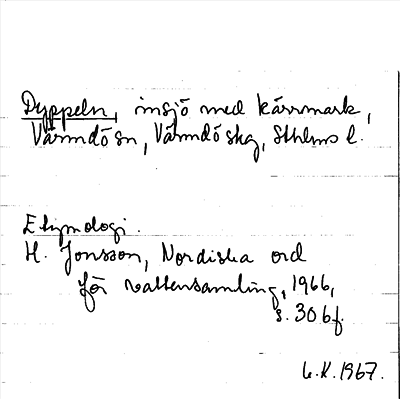 Dyppeln, insjö med kärrmark,
Värmdö sn, Värmdö skg, Sthlms l.
Etymologi.
H. Jonsson, Nordiska ord
för vattensamling, 1966,
s. 306f.
L.K. 1967.